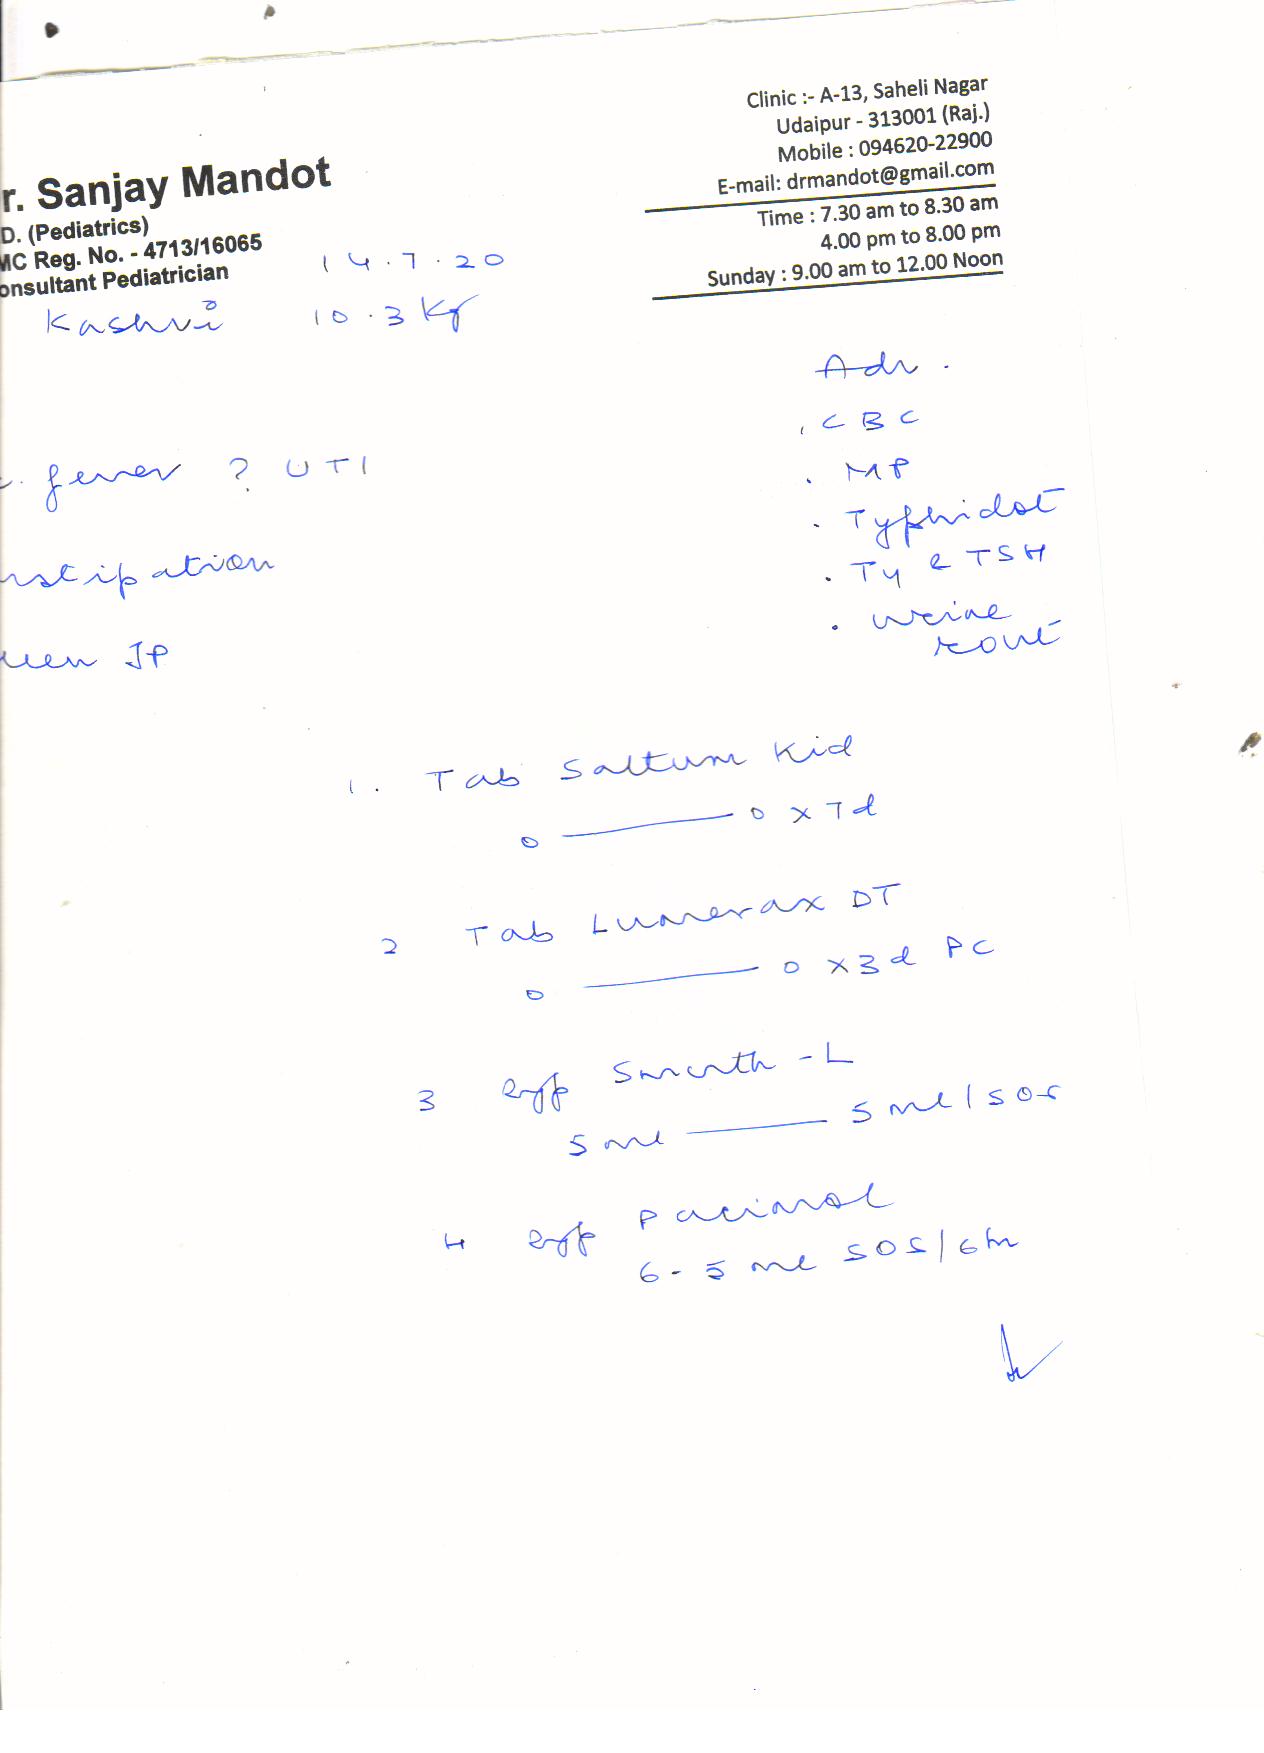 r. Sanjay Mandot
D. (Pediatrics)
MC Reg. No. - 4713/16065
onsultant Pediatrician
Clinic :- A-13, Saheli Nagar
Udaipur - 313001 (Raj.)
Mobile : 094620-22900
E-mail: drmandot@gmail.com
Time : 7.30 am to 8.30 am
4.00 pm to 8.00 pm
Sunday : 9.00 am to 12.00 Noon
14.7.20
Kashvi 10.3 Kg
Adv.
. CBC
. MP
. Typhidot
. T4 e TSH
. urine
rout
fever ? UTI
nstipation
1. Tab Saltum Kid
0 — 0 x 7d
2 Tab Lumerax DT
0 — 0 x 3d PC
3 syp Smuth - L
5 ml — 5 ml / SOS
4 syp Pacimol
6 - 5 ml SOS / 6h